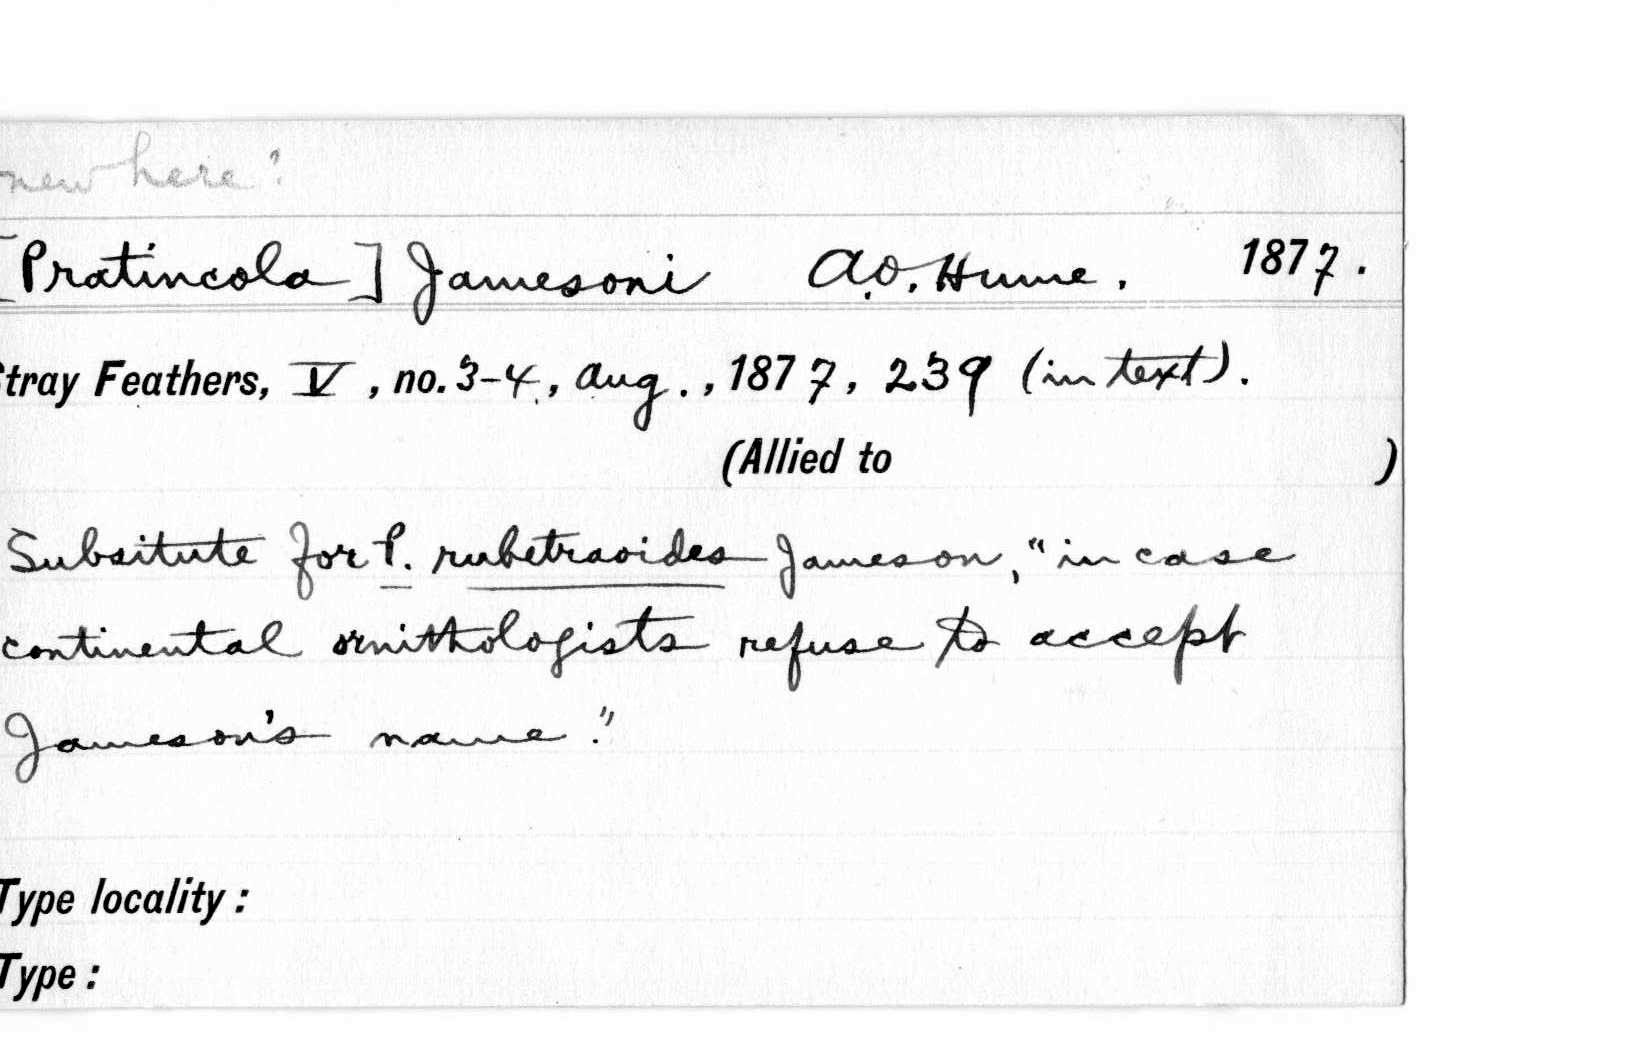 new here?
[Pratincola] Jamesoni A.O. Hume. 1877.
tray Feathers, V, no. 3-4, Aug., 1877, 239 (in text).
(Allied to )
Subsitute for P. rubetraoides Jameson, "in case
continental ornithologists refuse to accept
Jameson's name."
Type locality:
Type: